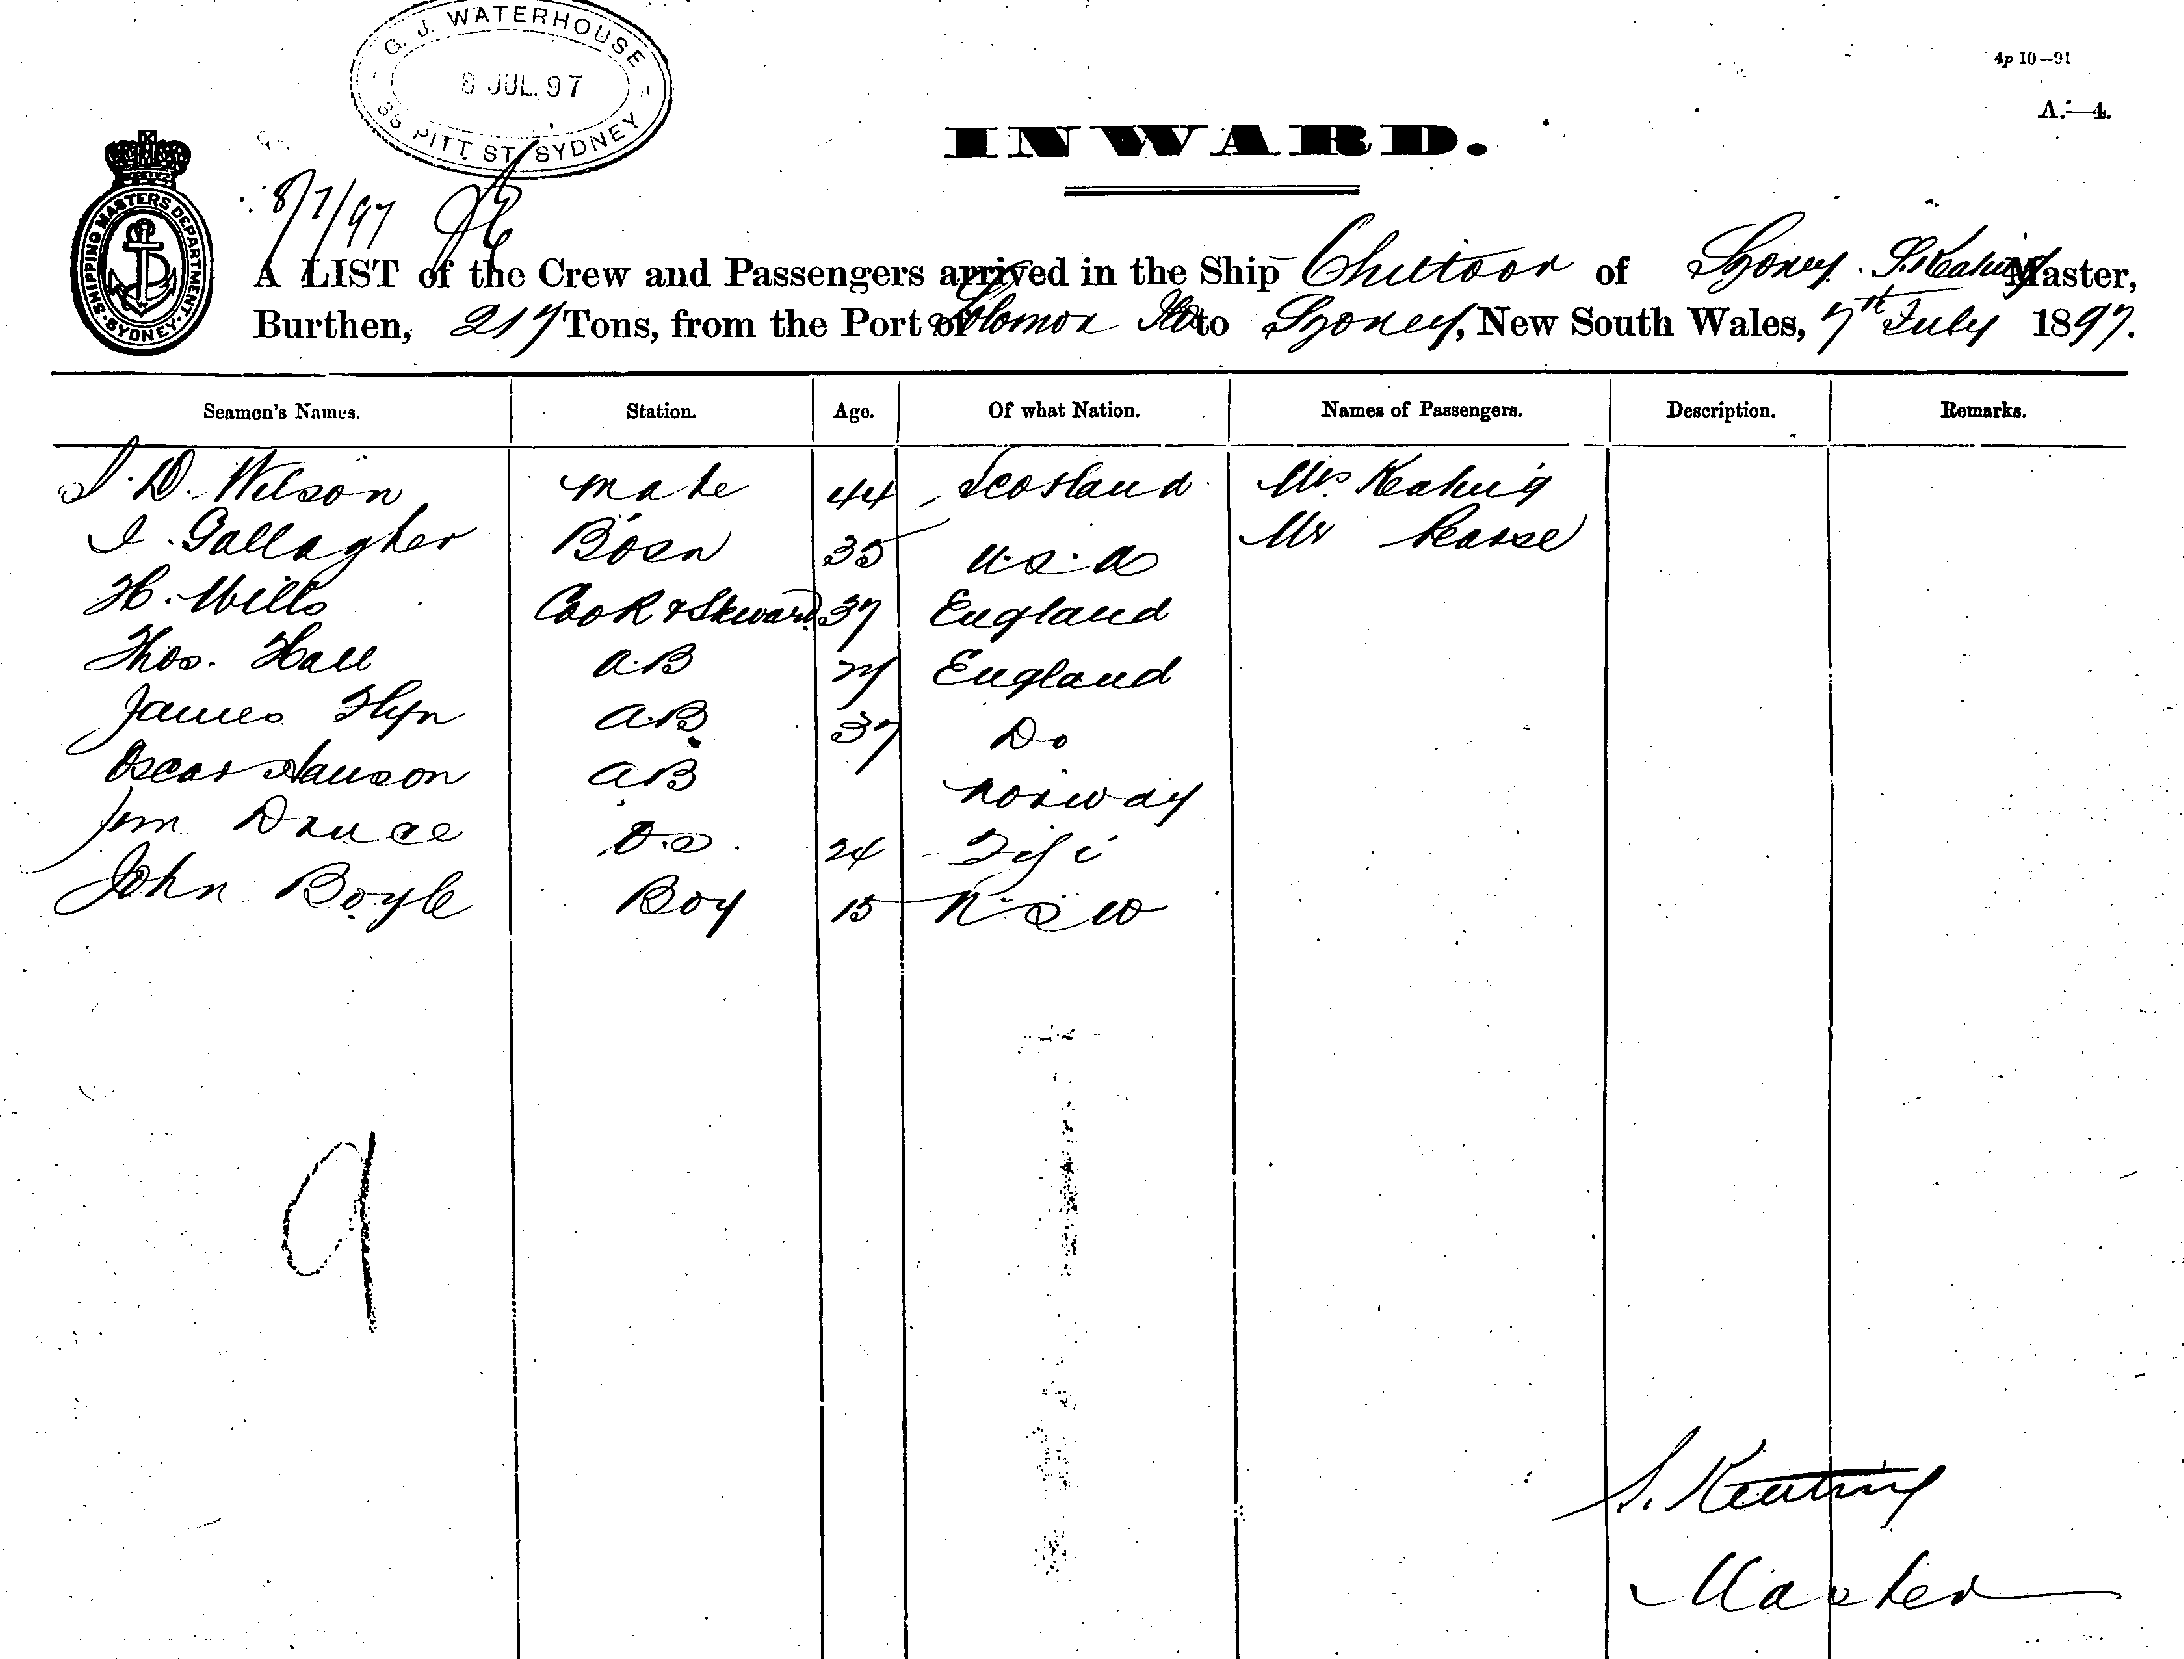 G. J. WATERHOUSE
8 JUL. 97
PITT ST. SYDNEY
4p 10-91
A.-4.
INWARD.
SHIPPING MASTERS DEPARTMENT. SYDNEY.
8/7/97
A LIST of the Crew and Passengers arrived in the Ship Chittoor of Sydney. S. Keating Master,
Burthen, 217 Tons, from the Port of Solomon Ilds to Sydney, New South Wales, 7th July 1897.
Seamen's Names. Station. Age. Of what Nation. Names of Passengers. Description. Remarks.
D. Wilson Mate 44 Scotland Mrs Keating
Gallagher Bosn 35 U.S.A Mr Pearse
H. Wills Cook & Steward 37 England
Thos. Hall A.B 27 England
James Flyn A.B 37 Do
Oscar Hanson A B Norway
Jim Druce O.S. 24 Fiji
John Boyle Boy 15 N.S W
9
S. Keating
Master